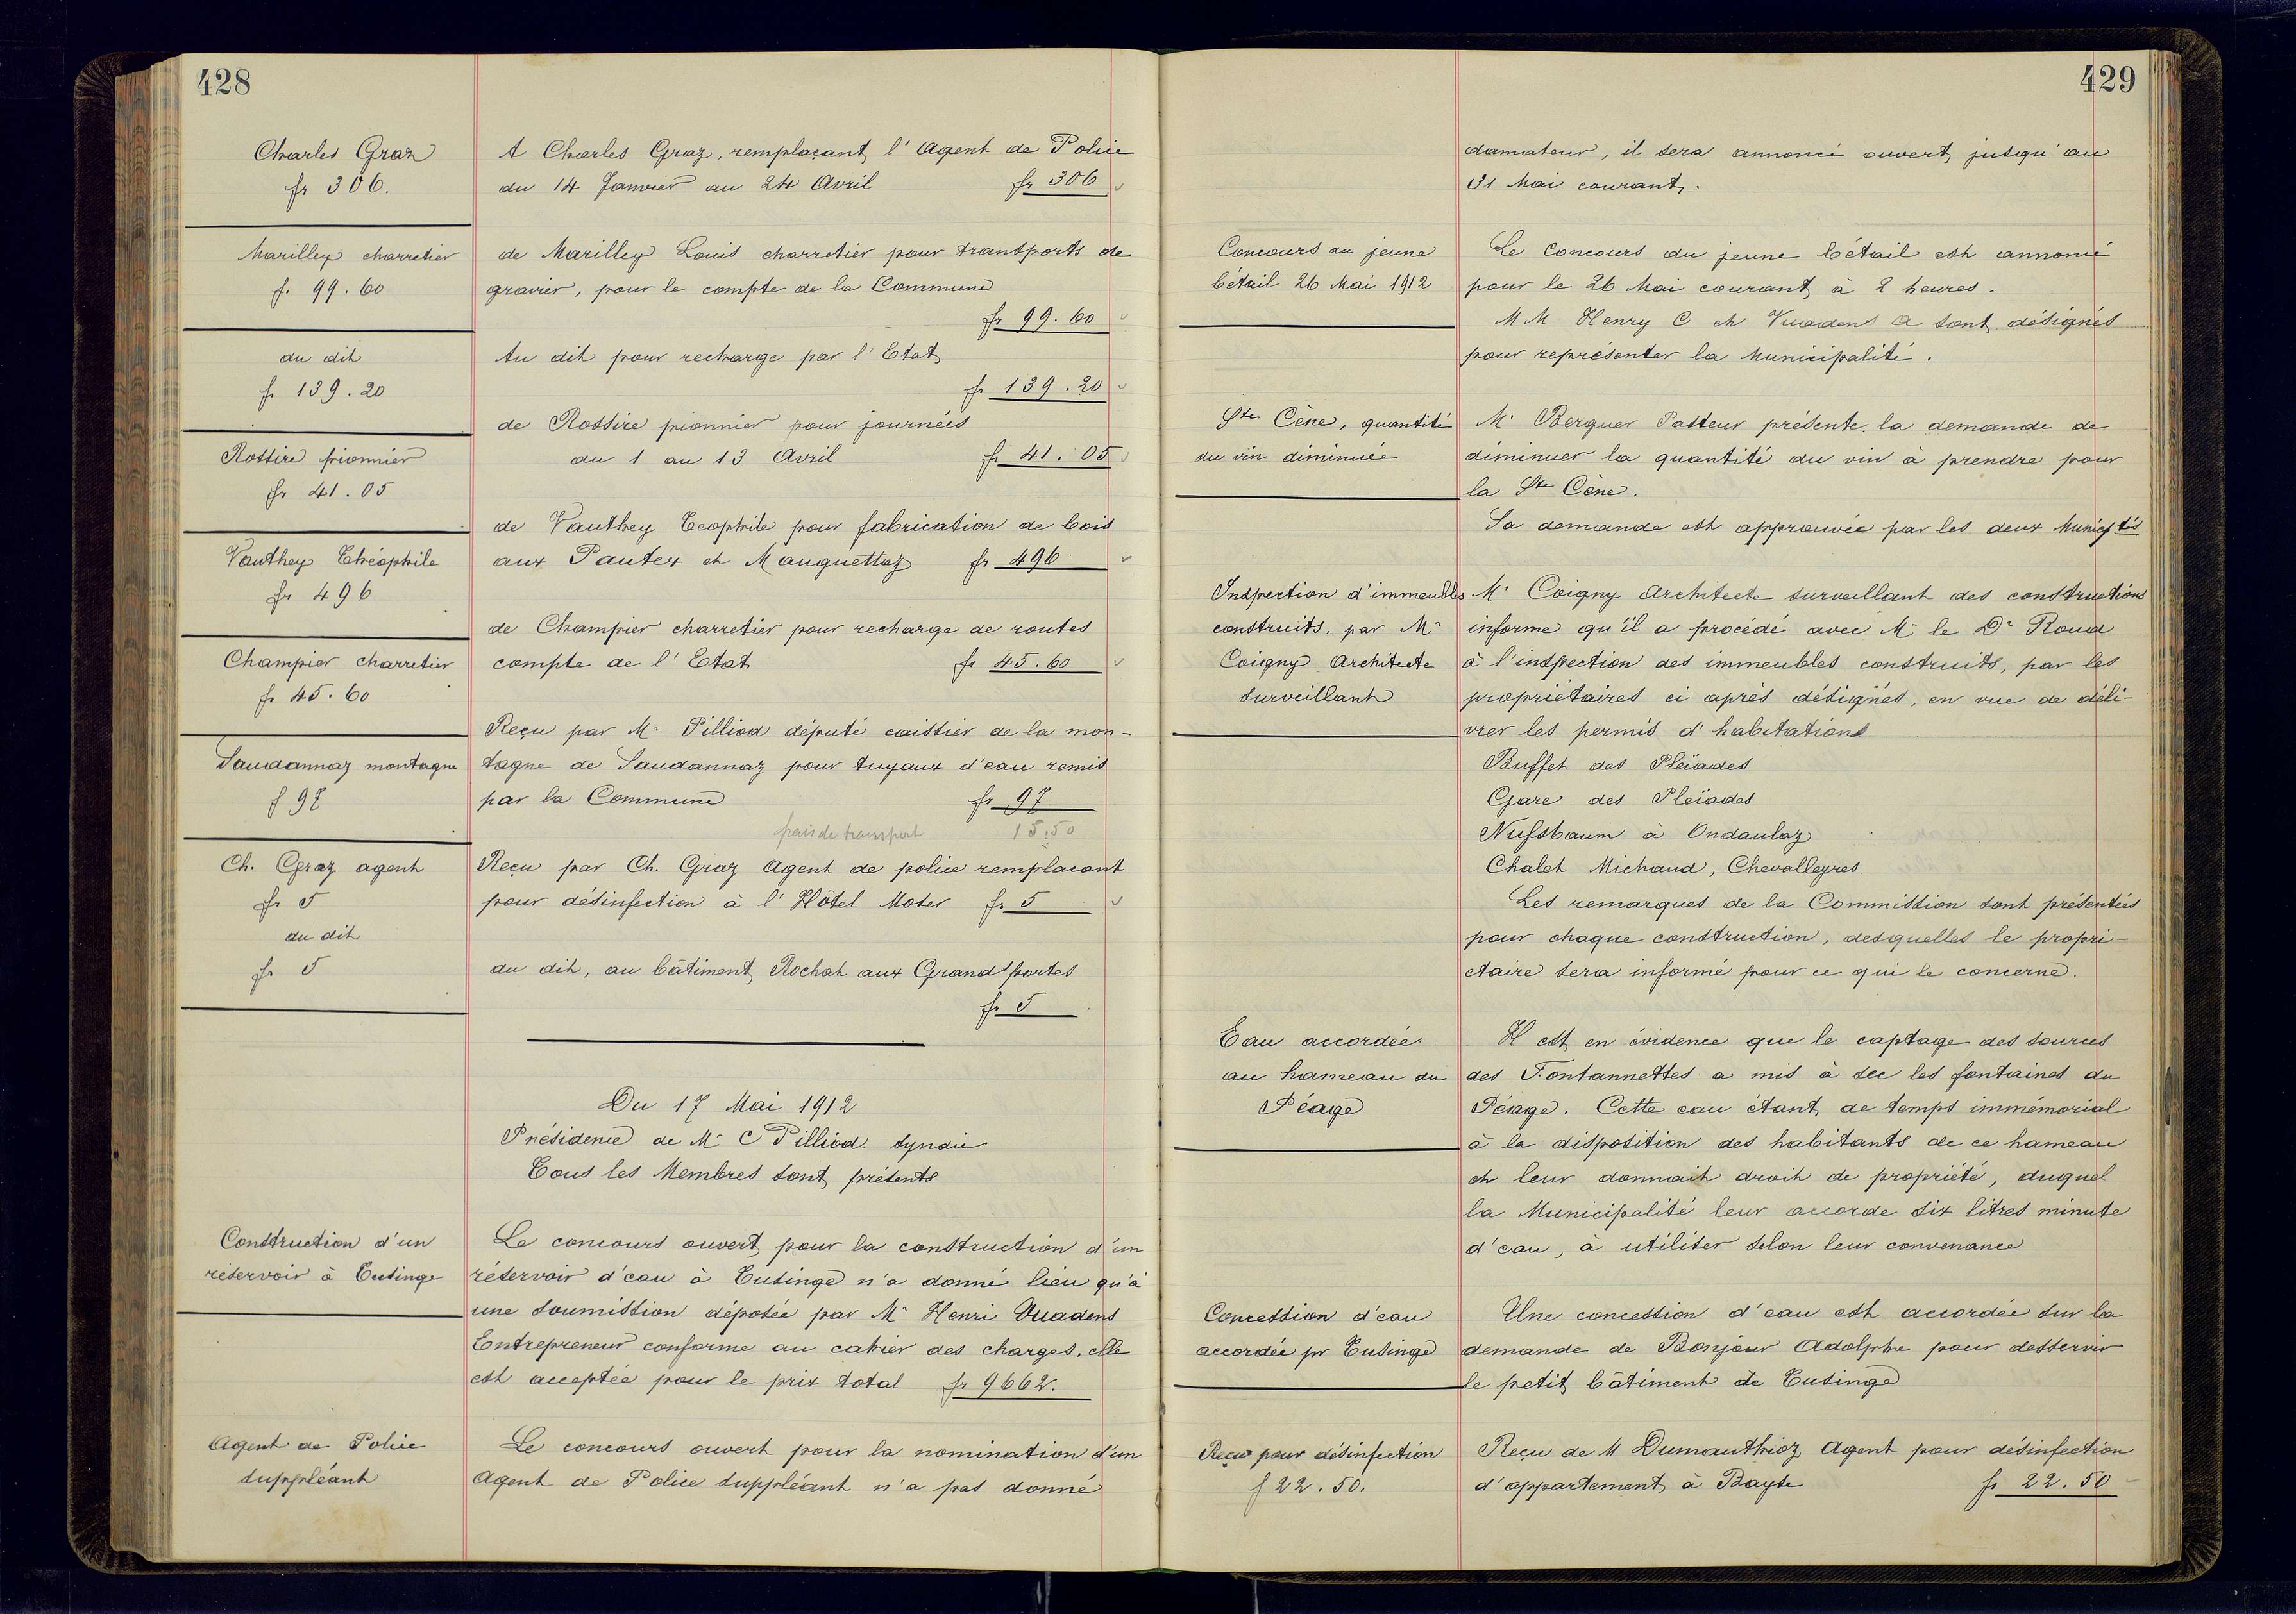 428
Charles Graz
fr 306.
A Charles Graz, remplaçant l'Agent de Police
du 14 Janvier au 24 Avril fr 306
Marilley charretier
f. 99.60
de Marilley Louis charretier pour transports de
gravier, pour le compte de la Commune
fr 99.60
du dit
fr 139.20
Au dit pour recharge par l'Etat
fr 139.20
Rossire pionnier
fr 41.05
de Rossire pionnier pour journées
du 1 au 13 Avril fr 41.05
Vauthey Théophile
fr 496
de Vauthey Teophile pour fabrication de bois
aux Pautex et Manguettaz fr 496
Champier charretier
fr 45.60
de Champier charretier pour recharge de routes
compte de l'Etat fr 45.60
Saudannaz montagne
f 97
Reçu par Mr Pilliod député caissier de la mon-
tagne de Saudannaz pour tuyaux d'eau remis
par la Commune fr 97
frais de transport 15.50
Ch. Graz agent
fr 5
Reçu par Ch. Graz Agent de police remplacant
pour désinfection à l'Hôtel Moser fr 5
du dit
fr 5
du dit, au bâtiment Rochat aux Grands portes
fr 5
Du 17 Mai 1912
Présidence de Mr C Pilliod syndic
Tous les Membres sont présents
Construction d'un
réservoir à Tusinge
Le concours ouvert pour la construction d'un
réservoir d'eau à Tusinge n'a donné lieu qu'à
une soumission déposée par Mr Henri Vuadens
Entrepreneur conforme au cahier des charges, elle
est acceptée pour le prix total fr 9662.
Agent de Police
suppléant
Le concours ouvert pour la nomination d'un
Agent de Police suppléant n'a pas donné
429
damateur, il sera annoncé ouvert jusqu'au
31 Mai courant.
Concours du jeune
bétail 26 Mai 1912
Le Concours du jeune bétail est annoncé
pour le 26 Mai courant à 2 heures.
MM Henry C et Vuadens A sont désignés
pour représenter la Municipalité.
Ste Cène, quantité
du vin diminuée
Mr Berguer Pasteur présente la demande de
diminuer la quantité du vin à prendre pour
la Ste Cène.
Sa demande est approuvée par les deux Municip tés
Inspection d'immeubles
construits, par Mr
Coigny Architecte
surveillant
Mr Coigny Architecte surveillant des constructions
informe qu'il a procédé avec Mr le Dr Roud
à l'inspection des immeubles construits, par les
propriétaires ci après désignés, en vue de déli-
vrer les permis d'habitations
Buffet des Pleïades
Gare des Pleïades
Nussbaum à Ondaulaz
Chalet Michaud, Chevalleyres.
Les remarques de la Commission sont présentées
pour chaque construction, desquelles le propri-
étaire sera informé pour ce qui le concerne.
Eau accordée
au hameau du
Péage
Il est en évidence que le captage des sources
des Fontannettes a mis à sec les fontaines du
Péage. Cette eau étant de temps immémorial
à la disposition des habitants de ce hameau
et leur donnait droit de propriété, duquel
la Municipalité leur accorde six litres minute
d'eau, à utiliser selon leur convenance
Concession d'eau
accordée pr Tusinge
Une concession d'eau est accordée sur la
demande de Bonjour Adolphe pour desservir
le petit bâtiment de Tusinge
Reçu pour désinfection
f 22.50.
Reçu de M Dumauthioz Agent pour désinfection
d'appartement à Bayse fr 22.50